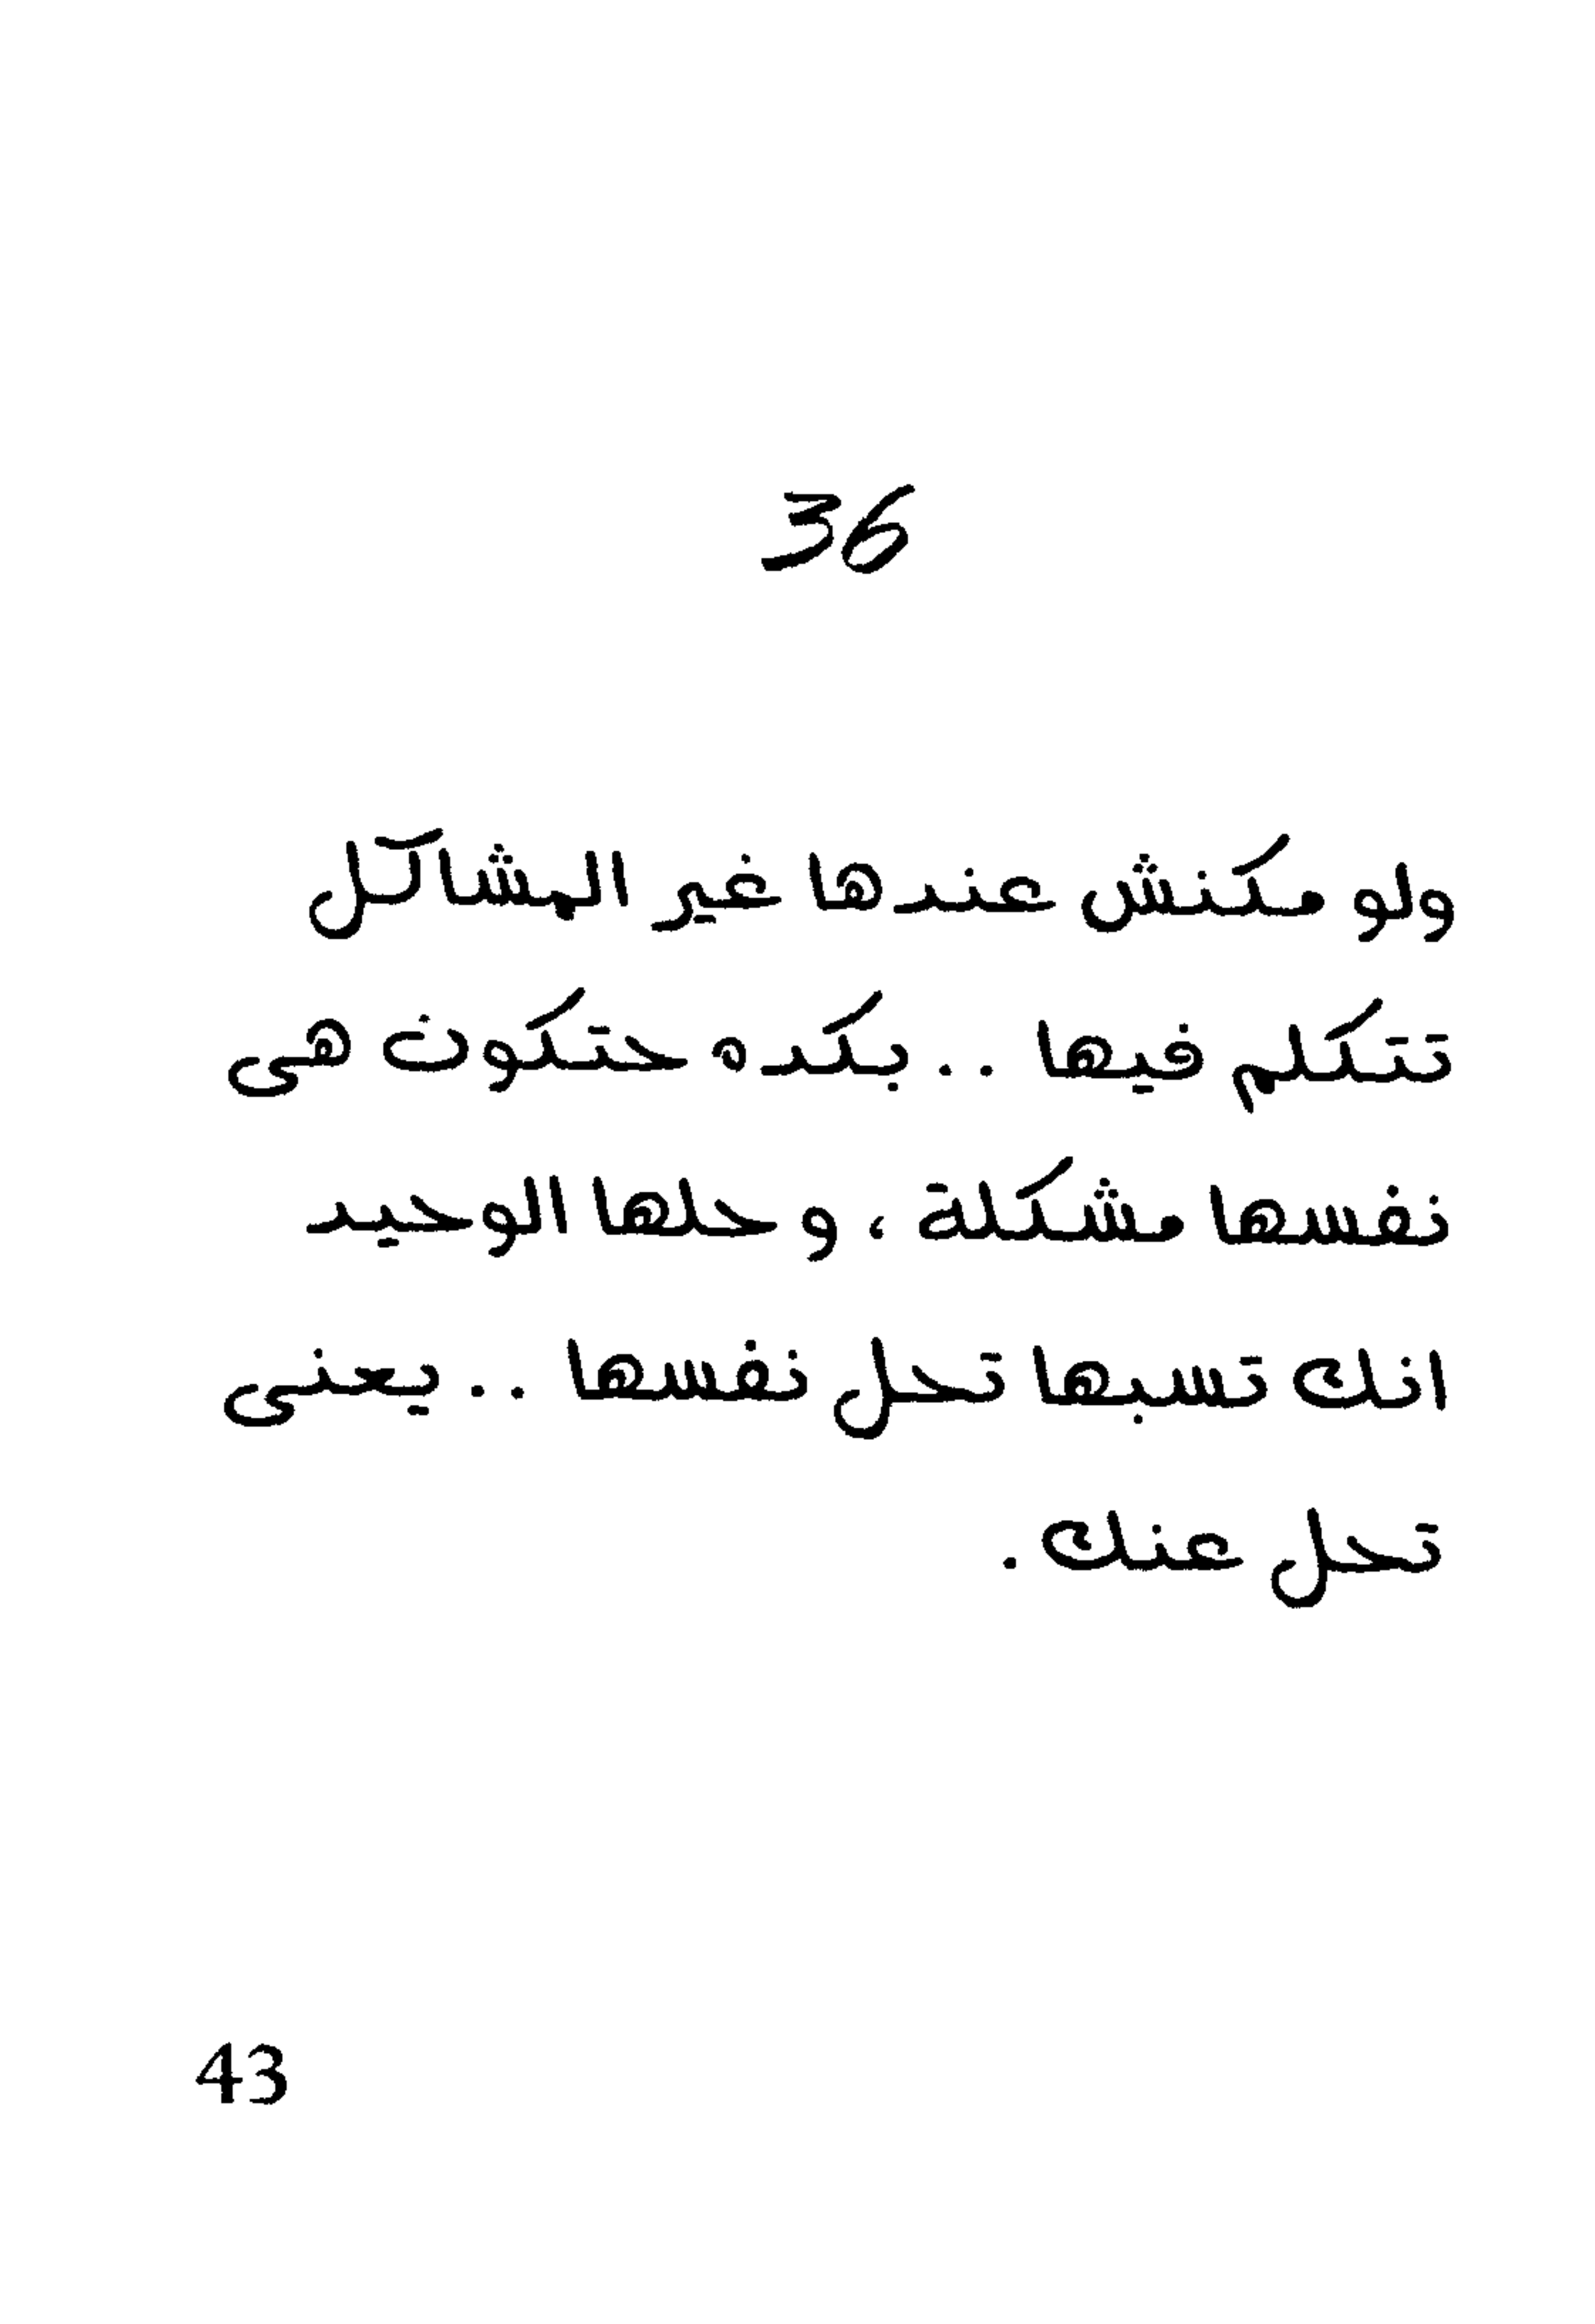 36
ولو مكنش عندها غير المشاكل
تتكلم فيها .. بكده حتكون هى
نفسها مشكلة ، وحلها الوحيد
انك تسبها تحل نفسها .. يعنى
تحل عنك .
43